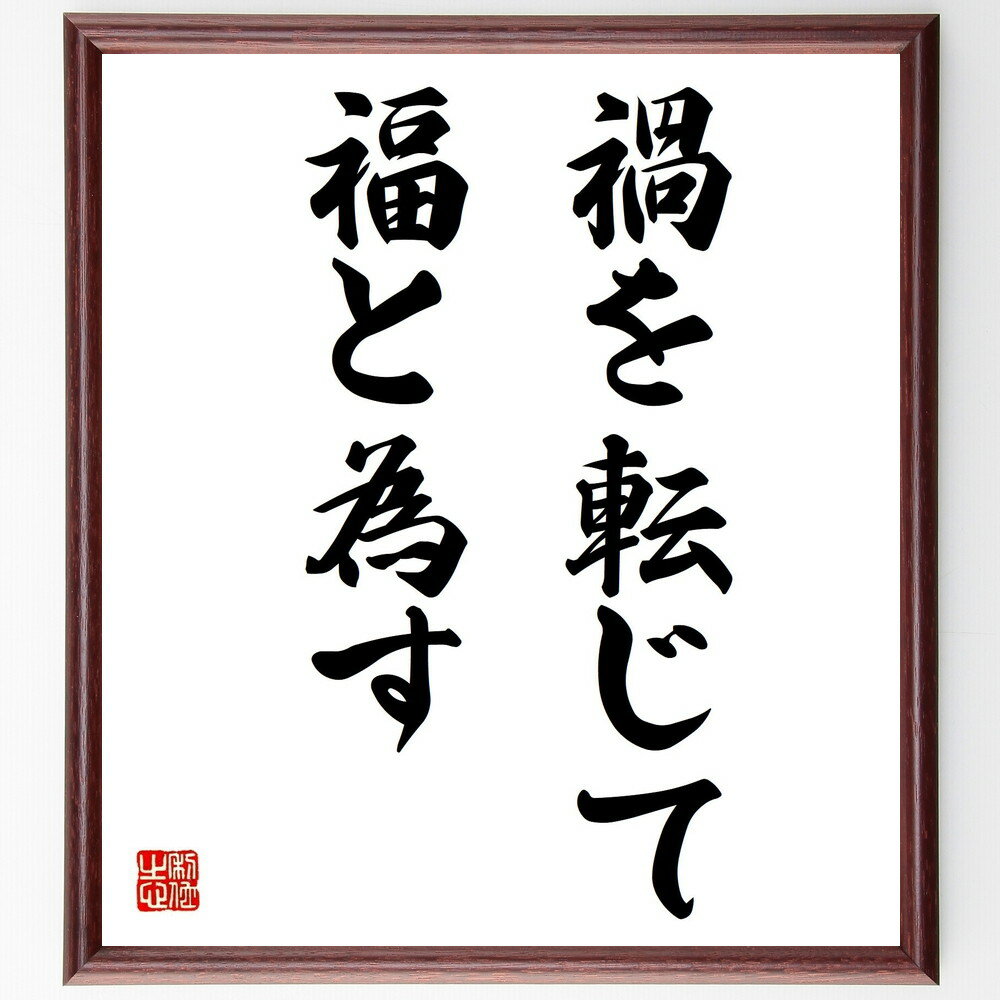 禍を転じて
福と為す